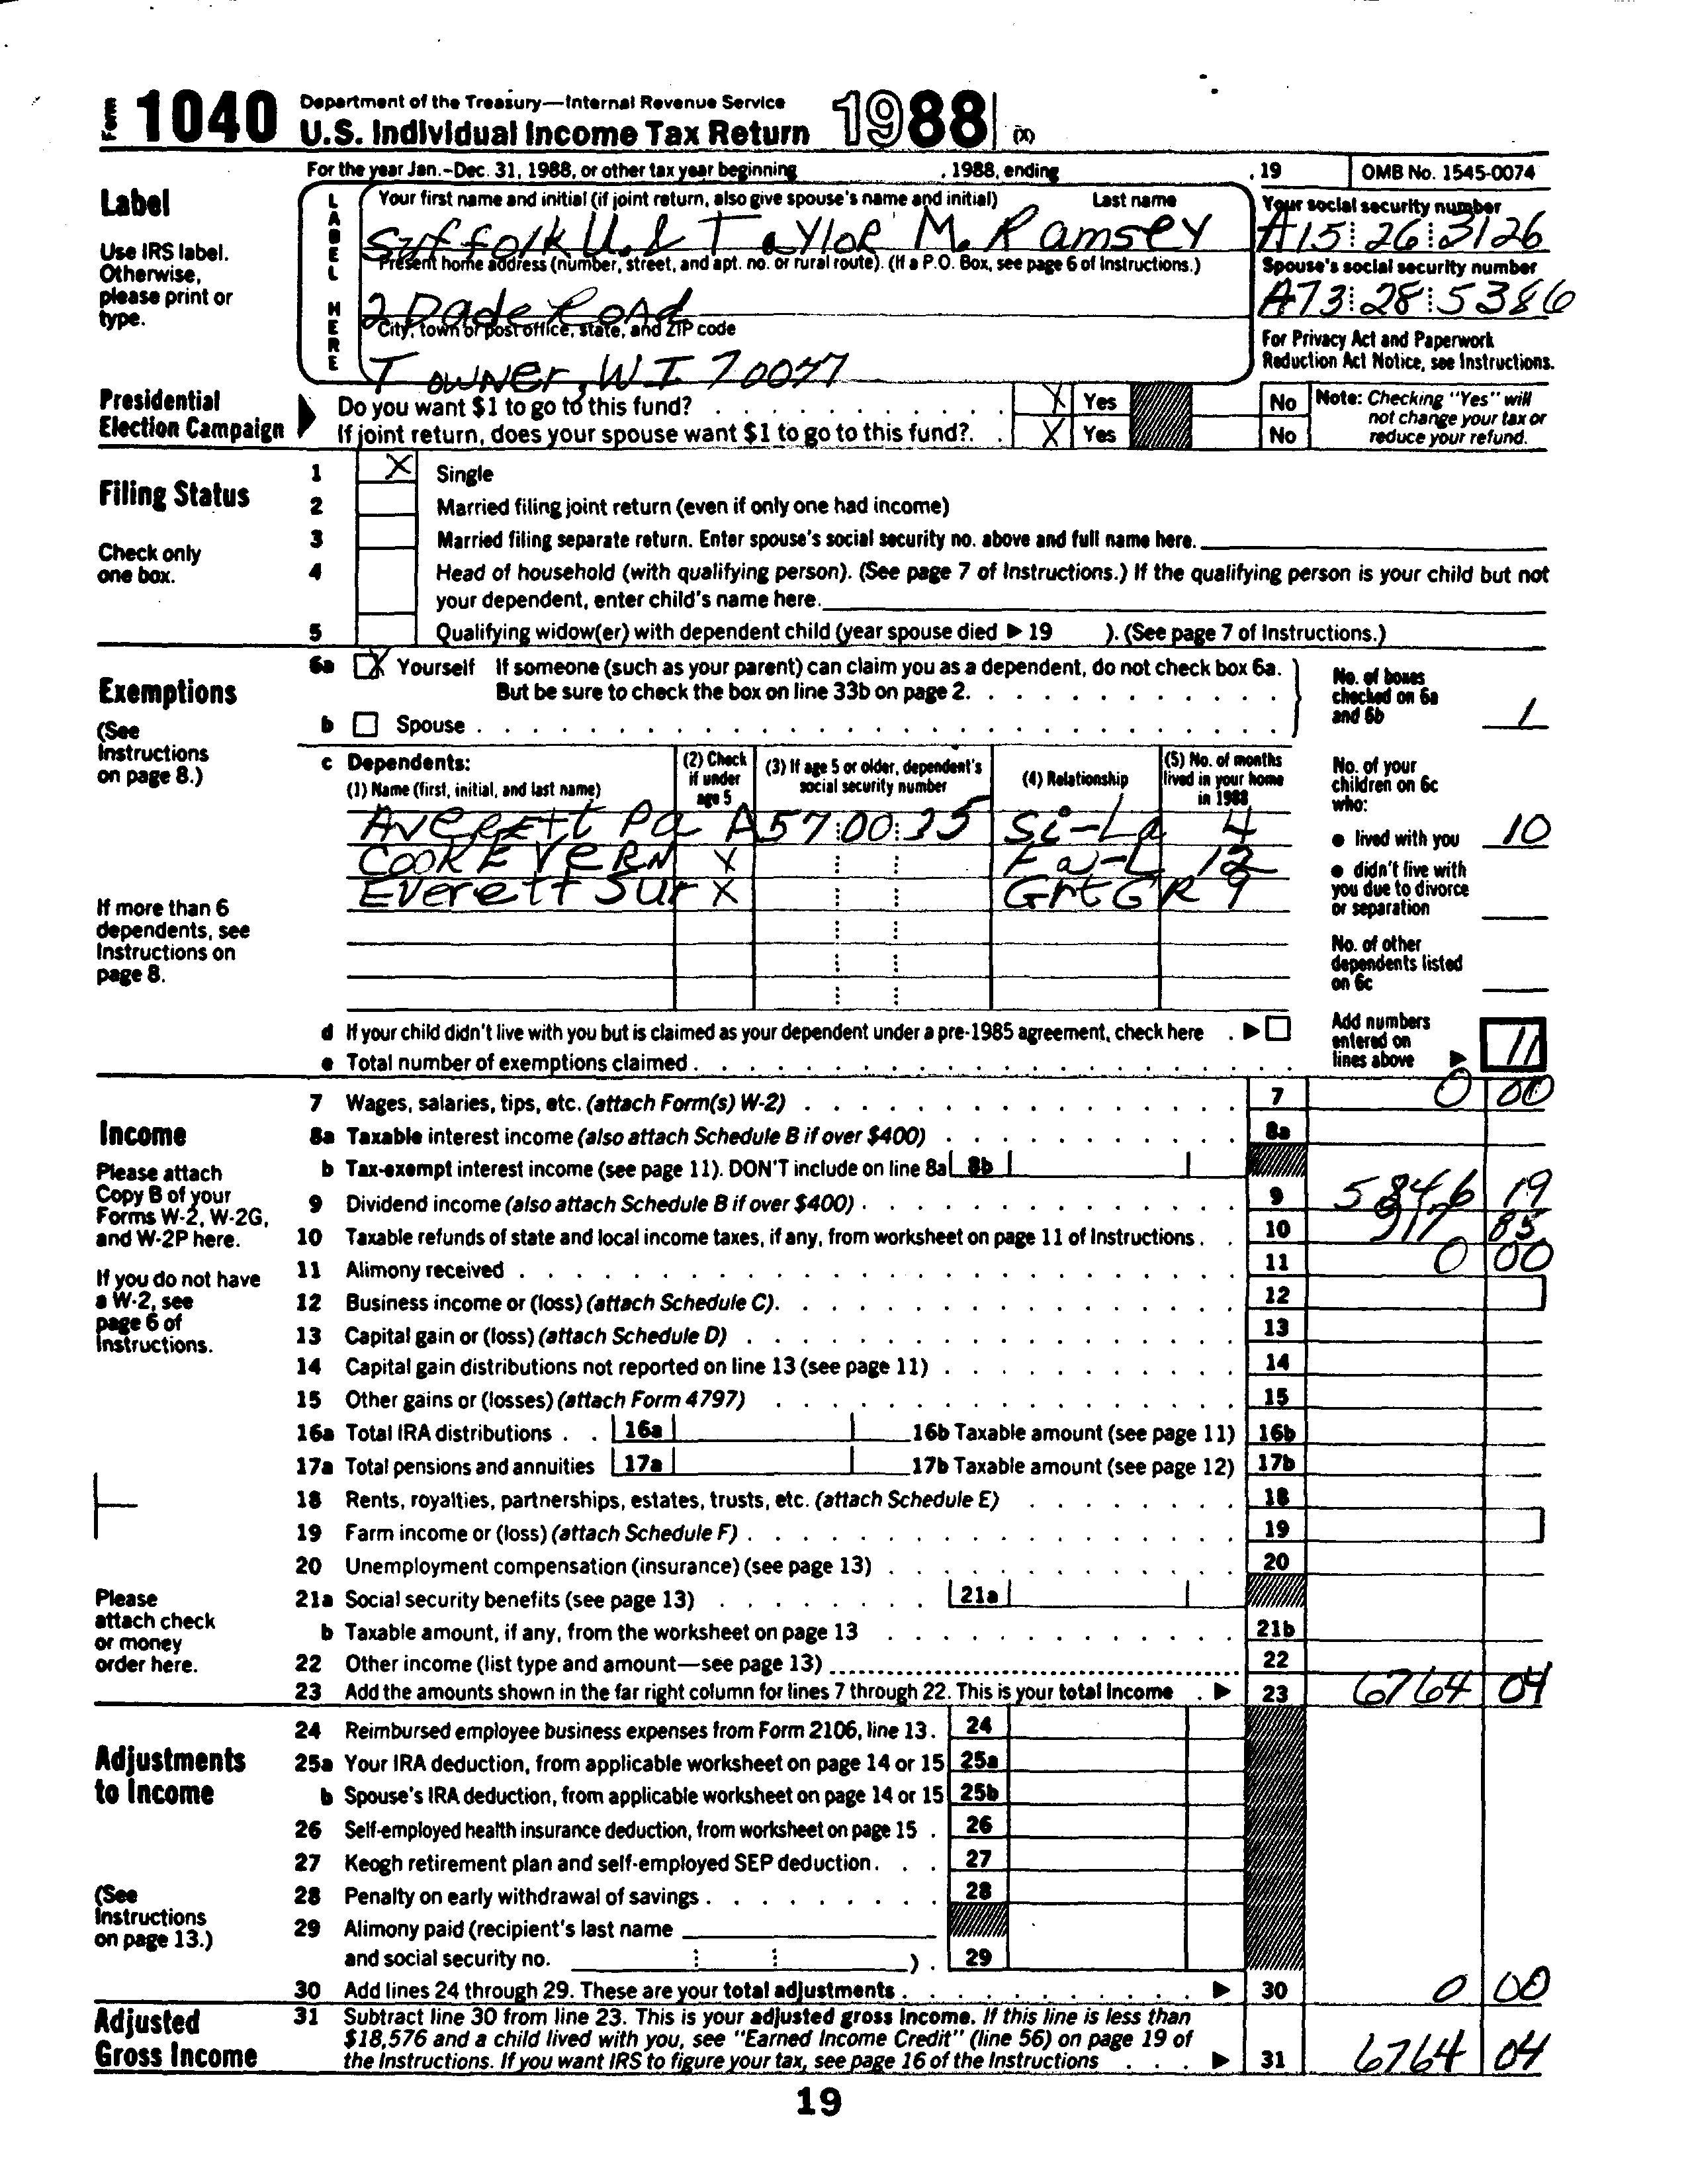 Form 1040 Department of the Treasury—Internal Revenue Service
U.S. Individual Income Tax Return 1988 (X)
For the year Jan.-Dec. 31, 1988, or other tax year beginning , 1988, ending , 19 OMB No. 1545-0074
Label
Use IRS label.
Otherwise,
please print or
type.
LABEL HERE
Your first name and initial (if joint return, also give spouse's name and initial) Last name
Suffolk U. & Taylor M. Ramsey
Your social security number
A15 26 3126
Present home address (number, street, and apt. no. or rural route). (If a P.O. Box, see page 6 of Instructions.)
2 Dade Road
Spouse's social security number
A73 28 5386
City, town or post office, state, and ZIP code
Towner, WI 70077
For Privacy Act and Paperwork
Reduction Act Notice, see Instructions.
Presidential
Election Campaign
Do you want $1 to go to this fund? X Yes No
If joint return, does your spouse want $1 to go to this fund? X Yes No
Note: Checking "Yes" will
not change your tax or
reduce your refund.
Filing Status
Check only
one box.
1 X Single
2 Married filing joint return (even if only one had income)
3 Married filing separate return. Enter spouse's social security no. above and full name here.
4 Head of household (with qualifying person). (See page 7 of Instructions.) If the qualifying person is your child but not
your dependent, enter child's name here.
5 Qualifying widow(er) with dependent child (year spouse died ▶ 19 ). (See page 7 of Instructions.)
Exemptions
(See
Instructions
on page 8.)
If more than 6
dependents, see
Instructions on
page 8.
6a X Yourself If someone (such as your parent) can claim you as a dependent, do not check box 6a.
But be sure to check the box on line 33b on page 2.
b Spouse
No. of boxes
checked on 6a
and 6b 1
c Dependents:
(1) Name (first, initial, and last name)
(2) Check
if under
age 5
(3) If age 5 or older, dependent's
social security number
(4) Relationship
(5) No. of months
lived in your home
in 1988
Averett Pa A57 00 35 Si-La 4
Cook E Vern X Fa-L 12
Everett Sur X GrtGR 9
No. of your
children on 6c
who:
● lived with you 10
● didn't live with
you due to divorce
or separation
No. of other
dependents listed
on 6c
d If your child didn't live with you but is claimed as your dependent under a pre-1985 agreement, check here ▶
e Total number of exemptions claimed
Add numbers
entered on
lines above ▶ 11
Income
Please attach
Copy B of your
Forms W-2, W-2G,
and W-2P here.
If you do not have
a W-2, see
page 6 of
Instructions.
Please
attach check
or money
order here.
7 Wages, salaries, tips, etc. (attach Form(s) W-2) 7 0 00
8a Taxable interest income (also attach Schedule B if over $400) 8a
b Tax-exempt interest income (see page 11). DON'T include on line 8a 8b
9 Dividend income (also attach Schedule B if over $400) 9 5846 19
10 Taxable refunds of state and local income taxes, if any, from worksheet on page 11 of Instructions 10 917 85
11 Alimony received 11 0 00
12 Business income or (loss) (attach Schedule C) 12
13 Capital gain or (loss) (attach Schedule D) 13
14 Capital gain distributions not reported on line 13 (see page 11) 14
15 Other gains or (losses) (attach Form 4797) 15
16a Total IRA distributions 16a 16b Taxable amount (see page 11) 16b
17a Total pensions and annuities 17a 17b Taxable amount (see page 12) 17b
18 Rents, royalties, partnerships, estates, trusts, etc. (attach Schedule E) 18
19 Farm income or (loss) (attach Schedule F) 19
20 Unemployment compensation (insurance) (see page 13) 20
21a Social security benefits (see page 13) 21a
b Taxable amount, if any, from the worksheet on page 13 21b
22 Other income (list type and amount—see page 13) 22
23 Add the amounts shown in the far right column for lines 7 through 22. This is your total income ▶ 23 6764 04
Adjustments
to Income
(See
Instructions
on page 13.)
24 Reimbursed employee business expenses from Form 2106, line 13. 24
25a Your IRA deduction, from applicable worksheet on page 14 or 15 25a
b Spouse's IRA deduction, from applicable worksheet on page 14 or 15 25b
26 Self-employed health insurance deduction, from worksheet on page 15 26
27 Keogh retirement plan and self-employed SEP deduction 27
28 Penalty on early withdrawal of savings 28
29 Alimony paid (recipient's last name
and social security no. ) 29
30 Add lines 24 through 29. These are your total adjustments ▶ 30 0 00
Adjusted
Gross Income
31 Subtract line 30 from line 23. This is your adjusted gross income. If this line is less than
$18,576 and a child lived with you, see "Earned Income Credit" (line 56) on page 19 of
the Instructions. If you want IRS to figure your tax, see page 16 of the Instructions ▶ 31 6764 04
19